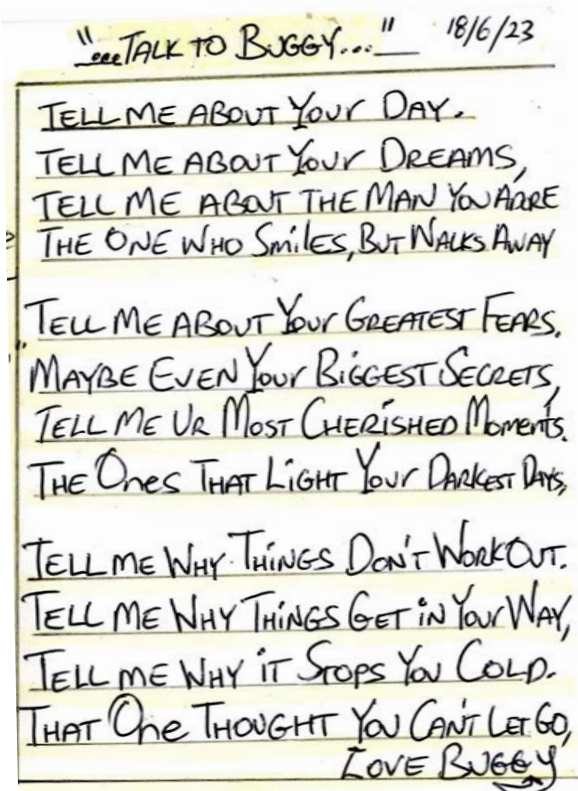 "...TALK TO BUGGY..." 18/6/23
TELL ME ABOUT YOUR DAY.
TELL ME ABOUT YOUR DREAMS,
TELL ME ABOUT THE MAN YOU ARRE
THE ONE WHO SMiLES, BUT WALKS AWAY
TELL ME ABOUT YOUR GREATEST FEARS.
MAYBE EVEN YOUR BiGGEST SECRETS,
TELL ME UR MOST CHERiSHED MOMENTS.
THE ONES THAT LiGHT YOUR DARKEST DAYS,
TELL ME WHY THiNGS DON'T WORK OUT.
TELL ME WHY THiNGS GET iN YOUR WAY,
TELL ME WHY iT STOPS YOU COLD.
THAT ONE THOUGHT YOU CAN'T LET GO,
LOVE BUGGY